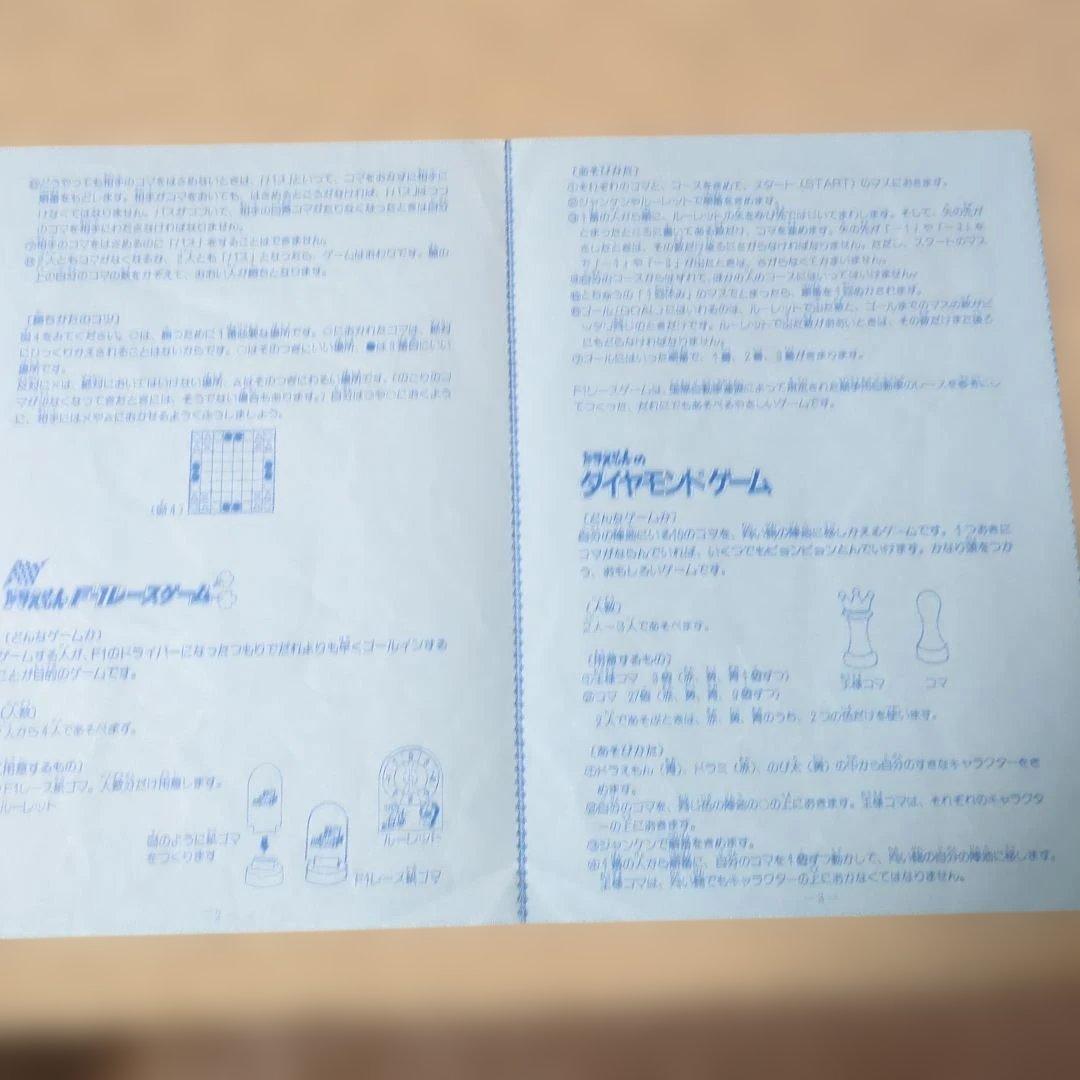 ⑥どうやっても相手のコマをはさめないときは、「パス」といって、コマをおかずに相手に
順番をもどします。相手がコマをおいても、はさめるところがなければ、「パス」はつづ
けなくてはなりません。パスがつづいて、相手の白黒コマがたりなくなったときは自分
のコマを相手にわたさなければなりません。
⑦相手のコマをはさめるのに「パス」をすることはできません。
⑧2人ともコマがなくなるか、2人とも「パス」となったら、ゲームはおわりです。盤の
上の自分のコマの数をかぞえて、おおい人が勝ちとなります。
〔勝ちかたのコツ〕
図4をみてください。○は、勝つために1番必要な場所です。○におかれたコマは、絶対
にひっくりかえされることはないからです。○はそのつぎにいい場所、●は3番目にいい
場所です。
反対に×は、絶対においてはいけない場所、△はそのつぎにわるい場所です。(のこりのコ
マが少なくなってきたときには、そうでない場合もあります。)自分は○や○におくように、
に、相手には×や△におかせるようくふうしましょう。
(図4)
ドラえもん F-1レースゲーム
〔どんなゲームか〕
ゲームする人が、F1のドライバーになったつもりでだれよりも早くゴールインする
ことが目的のゲームです。
〔人数〕
人から4人であそべます。
〔用意するもの〕
F1レース紙コマ。人数分だけ用意します。
ルーレット
図のように紙コマ
をつくります
ルーレット
F1レース紙コマ
—2—
〔あそびかた〕
①それぞれのコマと、コースをきめて、スタート(START)のマスにおきます。
②ジャンケンやルーレットで順番をきめます。
③1番の人から順に、ルーレットの矢をゆび先ではじいてまわします。そして、矢の先が
とまったところに書いてある数だけ、コマを進めます。矢の先が「−1」や「−3」を
さしたときは、その数だけ後ろにさがらなければなりません。ただし、スタートのマス
で「−1」や「−3」が出たときは、さがらなくてかまいません。
④自分のコースからはずれて、ほかの人のコースにはいってはいけません。
⑤とちゅうの「1回休み」のマスでとまったら、順番を1回ぬかされます。
⑥ゴール(GOAL)にはいれるのは、ルーレットで出た数と、ゴールまでのマスの数がピ
ッタリ同じのときだけです。ルーレットで出た数がおおいときは、その数だけまた後ろ
にもどらなければなりません。
⑦ゴールにはいった順番で、1番、2番、3番がきまります。
F1レースゲームは、国際自動車連盟によって規定された競争用自動車のレースを参考にし
てつくった、だれにでもあそべるやさしいゲームです。
ドラえもんの
ダイヤモンドゲーム
〔どんなゲームか〕
自分の陣地にいる10のコマを、向い側の陣地に移しかえるゲームです。1つおきに
コマがならんでいれば、いくつでもピョンピョンとんでいけます。かなり頭をつか
う、おもしろいゲームです。
〔人数〕
2人〜3人であそべます。
〔用意するもの〕
①王様コマ 3個(赤、黄、青1個ずつ)
②コマ 27個(赤、黄、青、9個ずつ)
2人であそぶときは、赤、黄、青のうち、2つの色だけを使います。
王様コマ
コマ
〔あそびかた〕
①ドラえもん(青)、ドラミ(赤)、のび太(黄)の中から自分のすきなキャラクターをき
めます。
②自分のコマを、同じ色の陣地の○の上におきます。王様コマは、それぞれのキャラクタ
ーの上におきます。
③ジャンケンで順番をきめます。
④1番の人から順番に、自分のコマを1個ずつ動かして、向い側の自分の陣地に移します。
王様コマは、向い側でもキャラクターの上におかなくてはなりません。
—3—